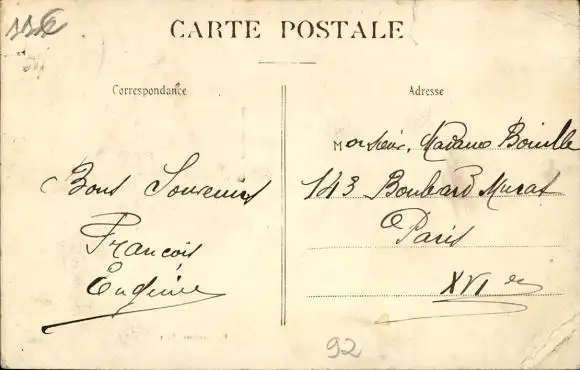 CARTE POSTALE
Correspondance
Adresse
Bons Souvenirs
François
Eugénie
Monsieur, Madame Bouille
143 Boulvard Murat
Paris
XVIe
92